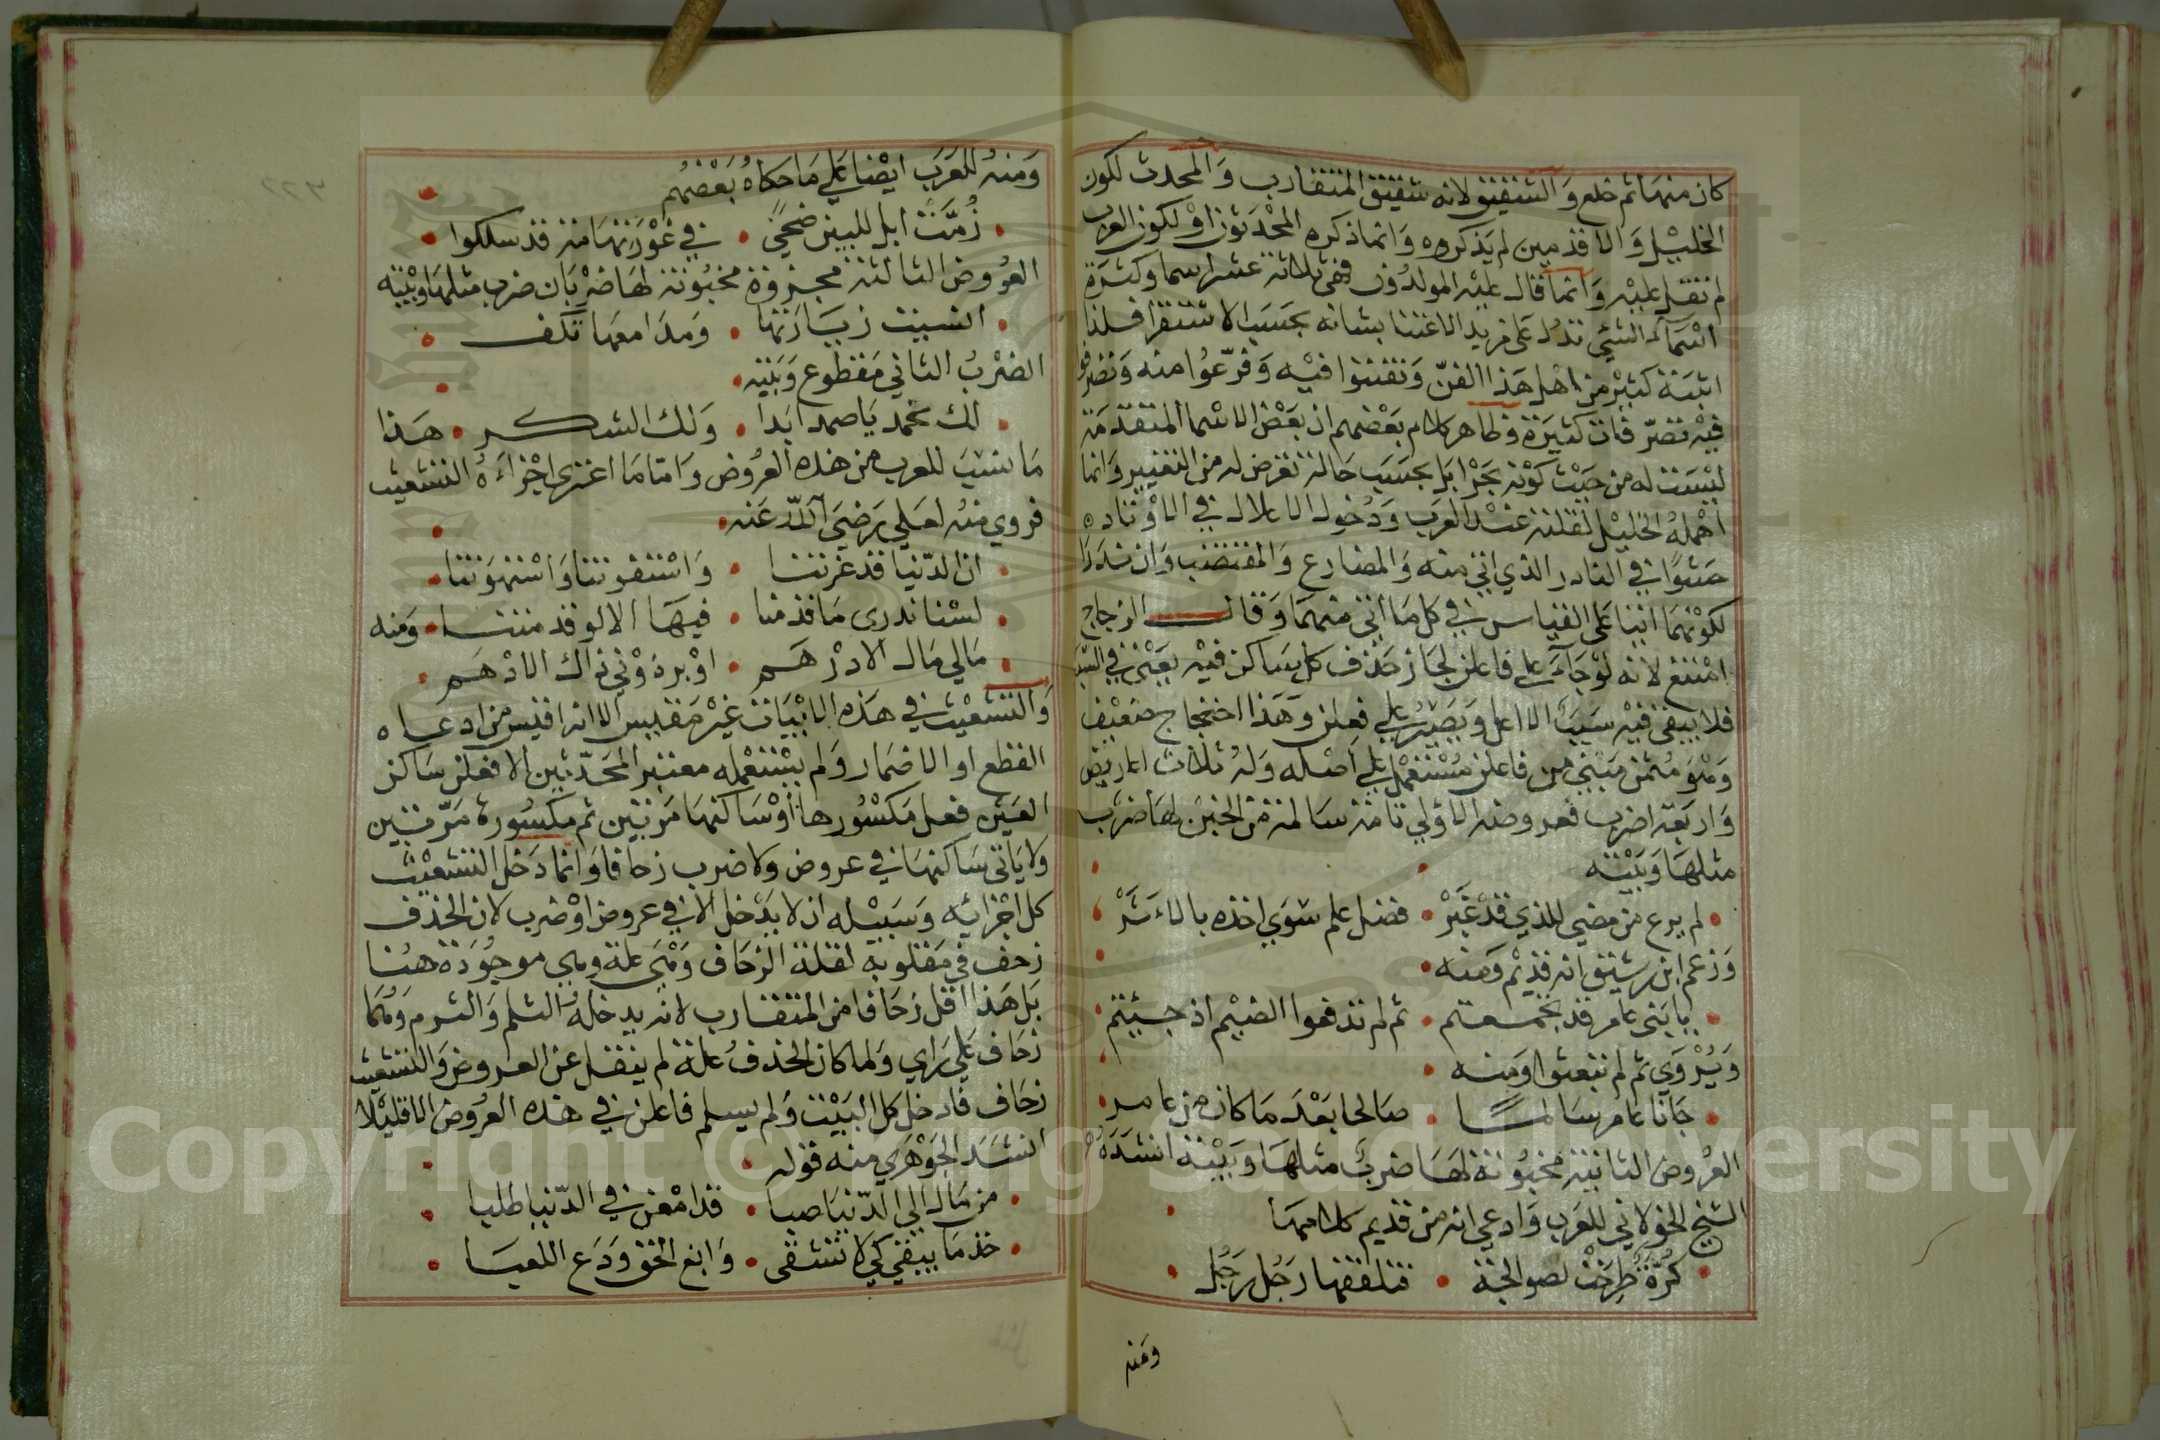 كان منها ثم خلع والشقيق لانه شقيق المتقارب والمحدث لكون
الخليل والاقدمين لم يذكروه وانما ذكره المحدثون او لكون العرب
لم تقل عليه وانما قال عليه المولدون فهي ثلاثة عشر اسما وكثرة
اسماء الشيء تدل على مزيد الاعتنا بشانه بحسب الاستقرا فلذا
اثبته كثير من اهل هذا الفن وتفننوا فيه وفرعوا منه وتصرفوا
فيه تصرفات كثيرة وظاهر كلام بعضهم ان بعض الاسما المتقدمة
ليست له من حيث كونه بحرا بل بحسب حالة تعرض له من التغيير وانما
اهمله الخليل لقلته عند العرب ودخول الاعلال في الاوتاده
حشوا في النادر الذي اتى منه والمضارع والمقتضب وان ندرا
لكونهما اتيا على القياس في كل ما اتى منهما وقال الزجاج
امتنع لانه لو جاء على فاعلن لجاز حذف كل ساكن فيه يعني في السبب
فلا يبقى فيه سبب الاعل ويصير على فعلن وهذا احتجاج ضعيف
وهو مثمن مبني من فاعلن مستعمل على اصله وله ثلاث اعاريض
واربعة اضرب فعروضه الاولى تامة سالمة من الخبن لها ضرب
مثلها وبيته
لم يدع من مضى للذي قد غبر • فضل علم سوى اخذه بالاثر
وزعم ابن رشيق انه قديم ومنه
يا بني عامر قد تجمعتم • ثم لم تدفعوا الضيم اذ جيتم
ويروى ثم لم تبعثوا ومنه
جانا عامر سالما • صالحا بعد ما كان من عامر
العروض الثانية مخبونة لها ضرب مثلها وبيته انشده
الشيخ الخولاني للعرب وادعى انه من قديم كلامها
كرة طرحت لصوالجة • فتلقفها رجل رجل
ومنه
ومنه للعرب ايضا على ما حكاه بعضهم
زمت ابل للبين ضحى • في غور تهامة قد سلكوا
العروض الثالثة مجزوة مخبونة لها ضربان ضرب مثلها وبيته
انسيت زيارتها • ومدامعها تكف
الضرب الثاني مقطوع وبيته
لك نحمد يا صمد ابدا • ولك الشكر • هذا
ما نسب للعرب من هذه العروض واما ما اعترى اجزاءه التشعيث
فروي منه لعلي رضي الله عنه
ان الدنيا قد غرتنا • واستقوتنا واستهوتنا
لسنا ندري ما قدمنا • فيها الا لو قد متنا • ومنه
مالي مال الا درهم • او برذوني ذاك الادهم
والتشعيث في هذه الابيات غير مقيس الا انه اقيس من ادعاه
القطع او الاضمار ولم يستعمله معتبر المحدثين الا فعلن ساكن
العين فعل مكسورها او ساكنها مرتين ثم مكسورة مرتين
ولا ياتي ساكنها في عروض ولا ضرب زحافا وانما دخل التشعيث
كل اجزائه وسبيله ان لا يدخل الا في عروض او ضرب لان الحذف
زحف في مقلوبه لقلة الزحاف وهي علة وهي موجودة هنا
بل هذا اقل زحافا من المتقارب لانه يدخله الثلم والثرم وهما
زحاف على راي ولما كان الحذف علة لم ينقل عن العروض والتشعيث
زحاف فادخل كل البيت ولم يسلم فاعلن في هذه العروض الا قليلا
انشد الجوهري منه قوله
من مال الى الدنيا صبا • قد امعن في الدنيا طلبا
خذ ما يبقى كي لا تشقى • وابغ الحق ودع اللعبا
Copyright © King Saud University